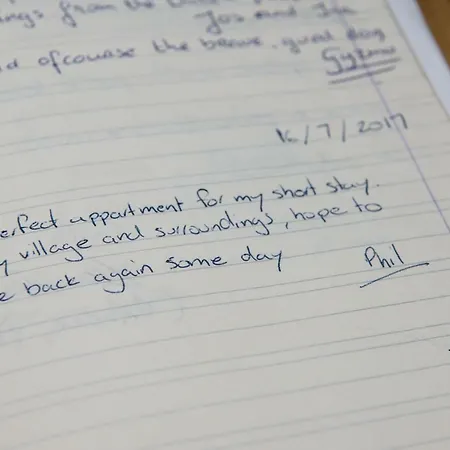 ings from the
Jos and Ida
d ofcourse the brave, quad dog
16/7/2017
erfect appartment for my short stay.
y village and surroundings, hope to
e back again some day Phil